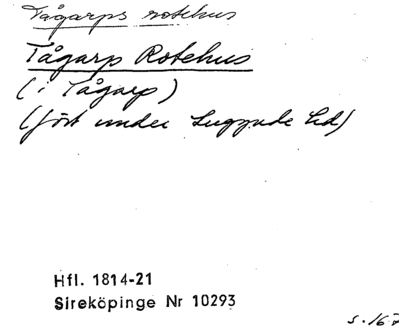 Tågarps rotehus
Tågarp Rotehus
(i Tågarp)
(fört under Luggude hd)
Hfl. 1814-21
Sireköpinge Nr 10293
s. 167